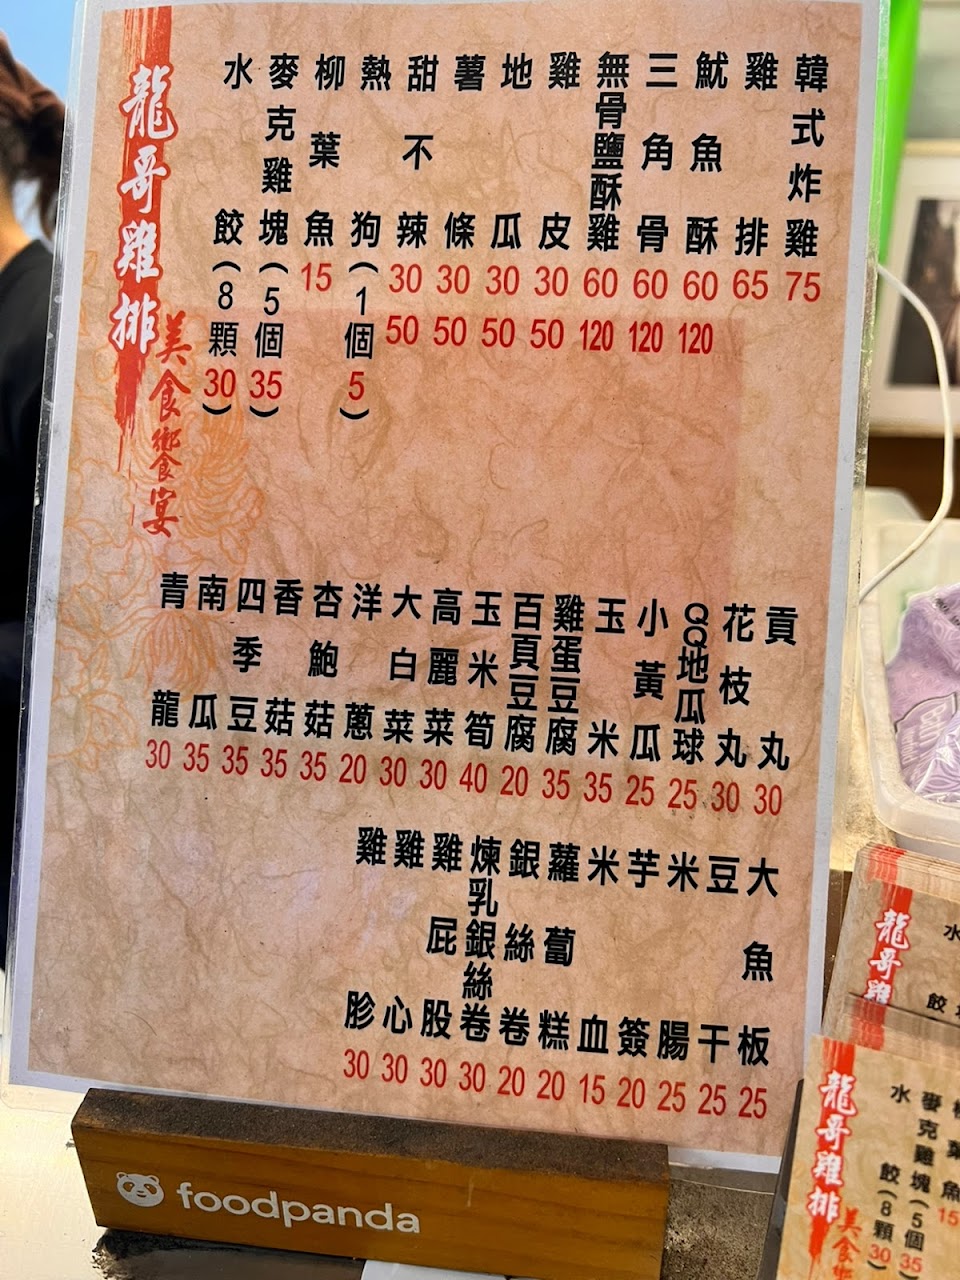 韓式炸雞 75
雞排 65
魷魚酥 60 120
三角骨 60 120
無骨鹽酥雞 60 120
雞皮 30 50
地瓜 30 50
薯條 30 50
甜不辣 30 50
熱狗(1個5)
柳葉魚 15
麥克雞塊(5個35)
水餃(8顆30)
龍哥雞排
美食饗宴
貢丸 30
花枝丸 30
QQ地瓜球 25
小黃瓜 25
玉米 35
雞蛋豆腐 35
百頁豆腐 20
玉米筍 40
高麗菜 30
大白菜 30
洋蔥 20
杏鮑菇 35
香菇 35
四季豆 35
南瓜 35
青龍 30
大魚板 25
豆干 25
米腸 25
芋簽 20
米血 15
蘿蔔糕 20
銀絲卷 20
煉乳銀絲卷 30
雞屁股 30
雞心 30
雞胗 30
foodpanda
龍哥雞
水
餃
龍哥雞排
美食
柳葉魚 15
麥克雞塊(5個35
水餃(8顆30